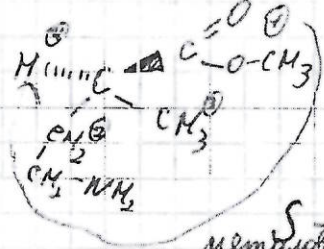 O
H C C
O-CH₃
CH₃
CH₂
CH₂-NH₂
S